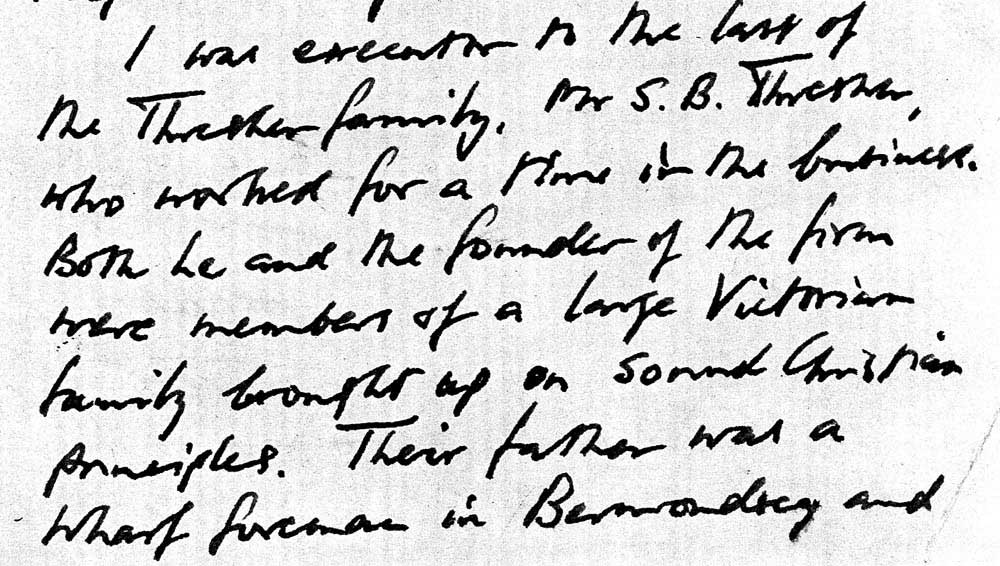 I was executor to the last of
the Thresher family, Mr S. B. Thresher,
who worked for a time in the business.
Both he and the founder of the firm
were members of a large Victorian
family brought up on sound Christian
principles. Their father was a
wharf foreman in Bermondsey and